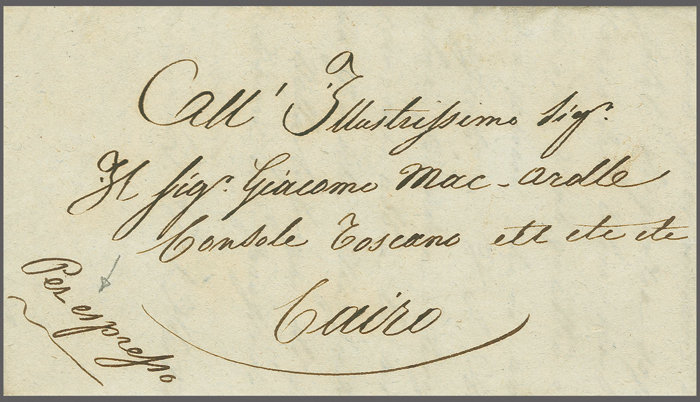 All' Illustrissimo Sigr.
Il Sigr. Giacomo Mac-ardle
Console Toscano etc etc etc
Cairo
Per espresso